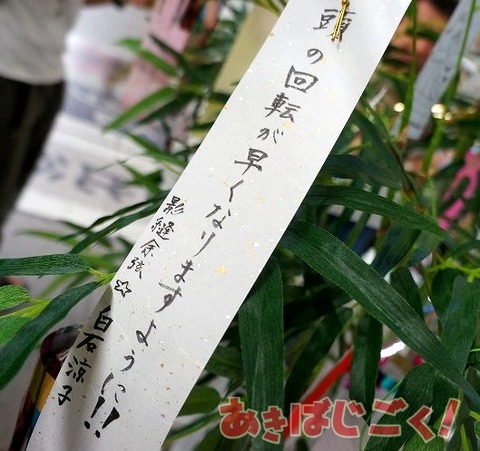 頭の回転が早くなりますように!!
影縫余弦☆白石涼子
あきばじごく!